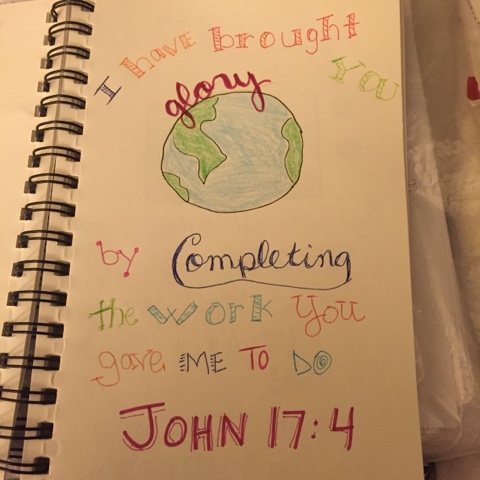 I have brought
You
glory
by Completing
the work You
gave ME TO DO
JOHN 17:4